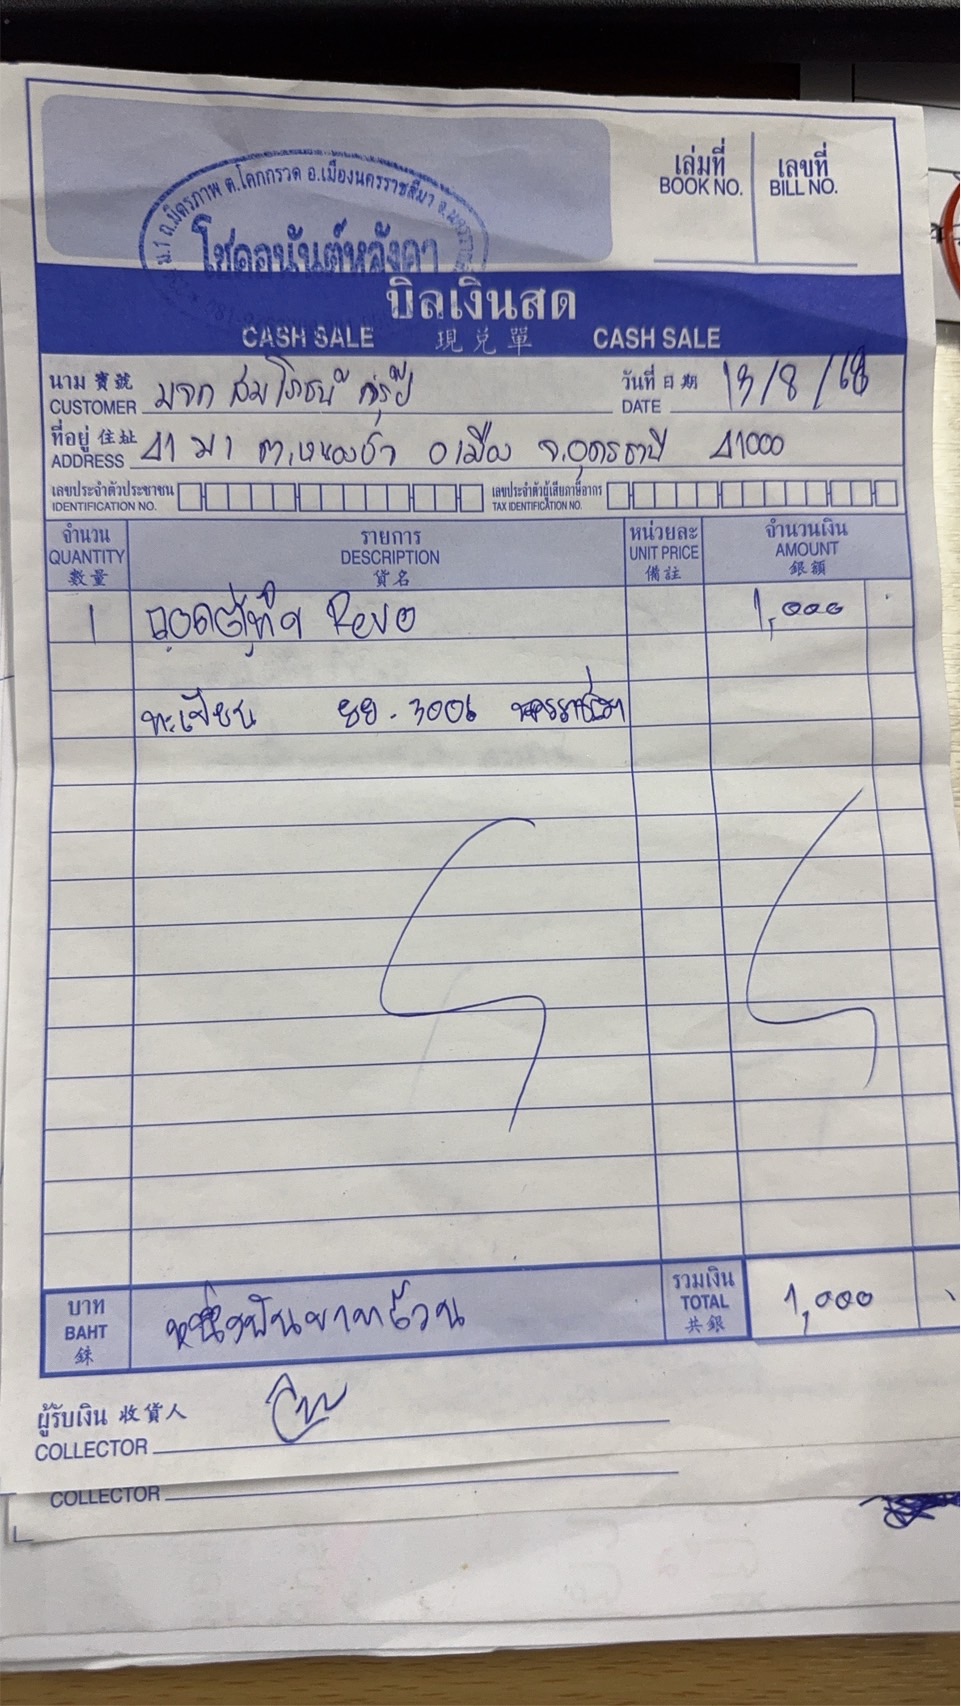 ม.1 ถ.มิตรภาพ ต.โคกกรวด อ.เมืองนครราชสีมา
โชคอนันต์หลังคา
เล่มที่ เลขที่
BOOK NO. BILL NO.
บิลเงินสด
CASH SALE 現兌單 CASH SALE
นาม 寶號 มจก สมโภชน์ กรุ๊ป วันที่ 日期 13/8/68
CUSTOMER DATE
ที่อยู่ 住址 41 ม 1 อ.เมือง จ.อุดรธานี 41000
ADDRESS
เลขประจำตัวประชาชน เลขประจำตัวผู้เสียภาษีอากร
IDENTIFICATION NO. TAX IDENTIFICATION NO.
จำนวน รายการ หน่วยละ จำนวนเงิน
QUANTITY DESCRIPTION UNIT PRICE AMOUNT
數量 貨名 備註 銀額
1 ถอดตู้ทึบ Revo 1,000
ทะเบียน ยย - 3006
บาท หนึ่งพันบาทถ้วน รวมเงิน 1,000
BAHT TOTAL
銖 共銀
ผู้รับเงิน 收貨人
COLLECTOR
COLLECTOR